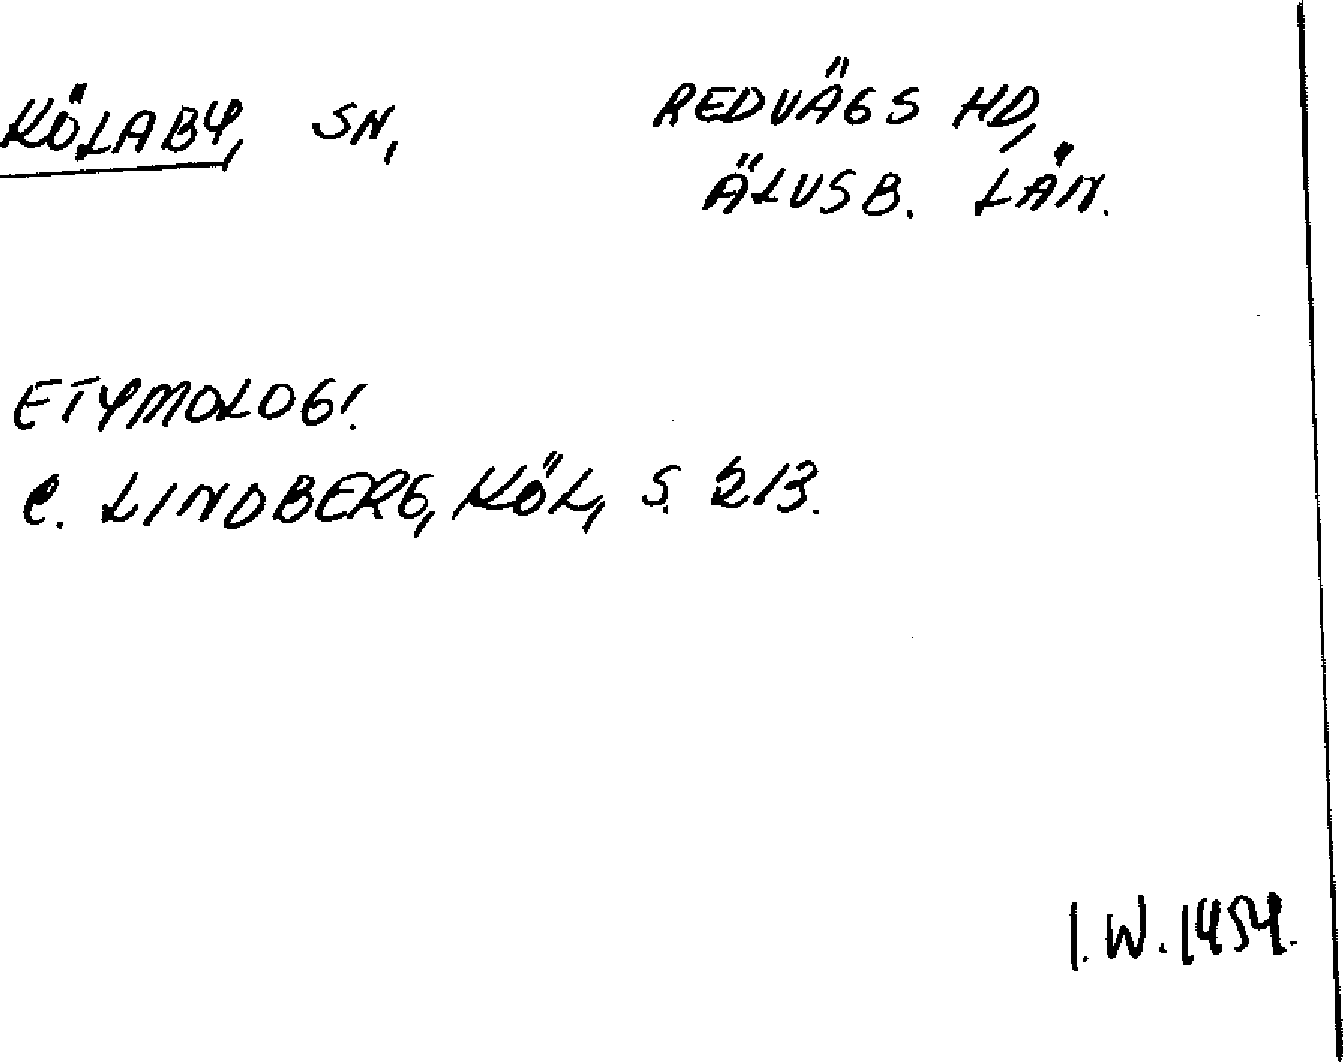 KÖLABY, SN, REDVÄGS HD,
ÄLVSB. LÄN.
ETYMOLOGI.
C. LINDBERG, KÖL, S. 213.
I.W. 1954.